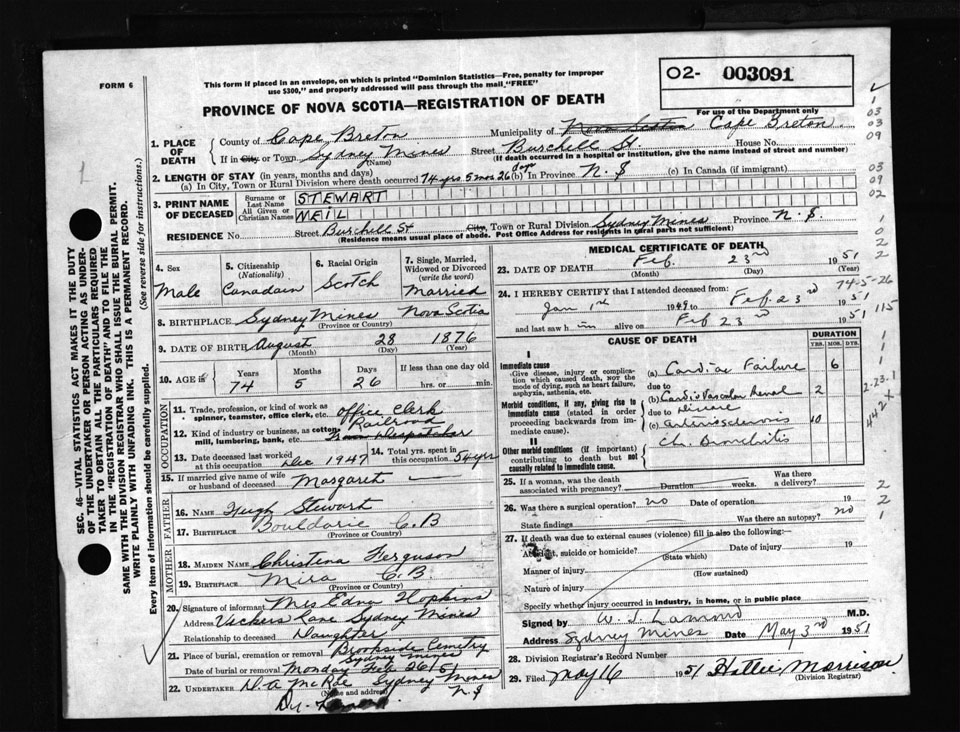 FORM 6
This form if placed in an envelope, on which is printed "Dominion Statistics—Free, penalty for improper
use $300," and properly addressed will pass through the mail "FREE"
PROVINCE OF NOVA SCOTIA—REGISTRATION OF DEATH
02- 003091
For use of the Department only
1. PLACE OF DEATH
County of Cape Breton Municipality of Cape Breton
If in City or Town Sydney Mines (Name) Street Burchell St House No.
(If death occurred in a hospital or institution, give the name instead of street and number)
2. LENGTH OF STAY (in years, months and days)
(a) In City, Town or Rural Division where death occurred 74 yrs 5 mos 26 days (b) In Province N. S (c) In Canada (if immigrant)
3. PRINT NAME OF DECEASED
Surname or Last Name STEWART
All Given or Christian Names NEIL
RESIDENCE No. Street Burchell St City, Town or Rural Division Sydney Mines Province N. S.
(Residence means usual place of abode. Post Office Address for residents in rural parts not sufficient)
4. Sex Male
5. Citizenship (Nationality) Canadain
6. Racial Origin Scotch
7. Single, Married, Widowed or Divorced (write the word) Married
8. BIRTHPLACE Sydney Mines Nova Scotia
(Province or Country)
9. DATE OF BIRTH August 28 1876
(Month) (Day) (Year)
10. AGE in Years Months Days If less than one day old
74 5 26 hrs. or min.
OCCUPATION
11. Trade, profession, or kind of work as spinner, teamster, office clerk, etc. office Clerk
12. Kind of industry or business, as cotten mill, lumbering, bank, etc. Railroad
13. Date deceased last worked at this occupation Dec 1947
14. Total yrs. spent in this occupation 54 yrs
15. If married give name of wife or husband of deceased Margaret
FATHER
16. NAME Hugh Stewart
17. BIRTHPLACE C. B
(Province or Country)
MOTHER
18. MAIDEN NAME Christena Ferguson
19. BIRTHPLACE Mira C. B.
(Province or Country)
20. Signature of informant Mrs Edna Hopkins
Address Vickers Lane Sydney Mines
Relationship to deceased Daughter
21. Place of burial, cremation or removal Brookside Cemetry
Sydney Mines
Date of burial or removal Monday Feb 26/51
22. UNDERTAKER D. A McRae Sydney Mines
(Name and address) N. S
MEDICAL CERTIFICATE OF DEATH
23. DATE OF DEATH Feb. 23rd 1951
(Month) (Day) (Year)
74-5-26
24. I HEREBY CERTIFY that I attended deceased from:
Jan 1st to Feb 23rd 1951
and last saw him alive on Feb 23rd 1951
CAUSE OF DEATH
DURATION
YRS. MOS. DYS.
I
Immediate cause
-Give disease, injury or complication which caused death, not the mode of dying, such as heart failure, asphyxia, asthenia, etc.
(a) Cardiac Failure 6
due to
Morbid conditions, if any, giving rise to immediate cause (stated in order proceeding backwards from immediate cause).
(b) Cardio Vascular Renal 2
due to Disease
(c) Arteriosclerosis 10
II
Other morbid conditions (if important) contributing to death but not causally related to immediate cause.
Ch. Bronchitis
25. If a woman, was the death associated with pregnancy? Duration weeks. Was there a delivery?
26. Was there a surgical operation? no Date of operation 19
State findings Was there an autopsy? no
27. If death was due to external causes (violence) fill in also the following:
Accident, suicide or homicide? (State which) Date of injury 19
Manner of injury (How sustained)
Nature of injury
Specify whether injury occurred in industry, in home, or in public place
Signed by M.D.
Address Sydney Mines Date May 3rd 1951
28. Division Registrar's Record Number
29. Filed May 16 1951 Hattie Morrison
(Division Registrar)
SEC. 46—VITAL STATISTICS ACT MAKES IT THE DUTY
OF THE UNDERTAKER OR PERSON ACTING AS UNDERTAKER
TO OBTAIN ALL THE PARTICULARS REQUIRED
IN THE "REGISTRATION OF DEATH" AND TO FILE THE
SAME WITH THE DIVISION REGISTRAR WHO SHALL ISSUE THE BURIAL PERMIT.
WRITE PLAINLY WITH UNFADING INK. THIS IS A PERMANENT RECORD.
Every item of information should be carefully supplied. (See reverse side for instructions.)